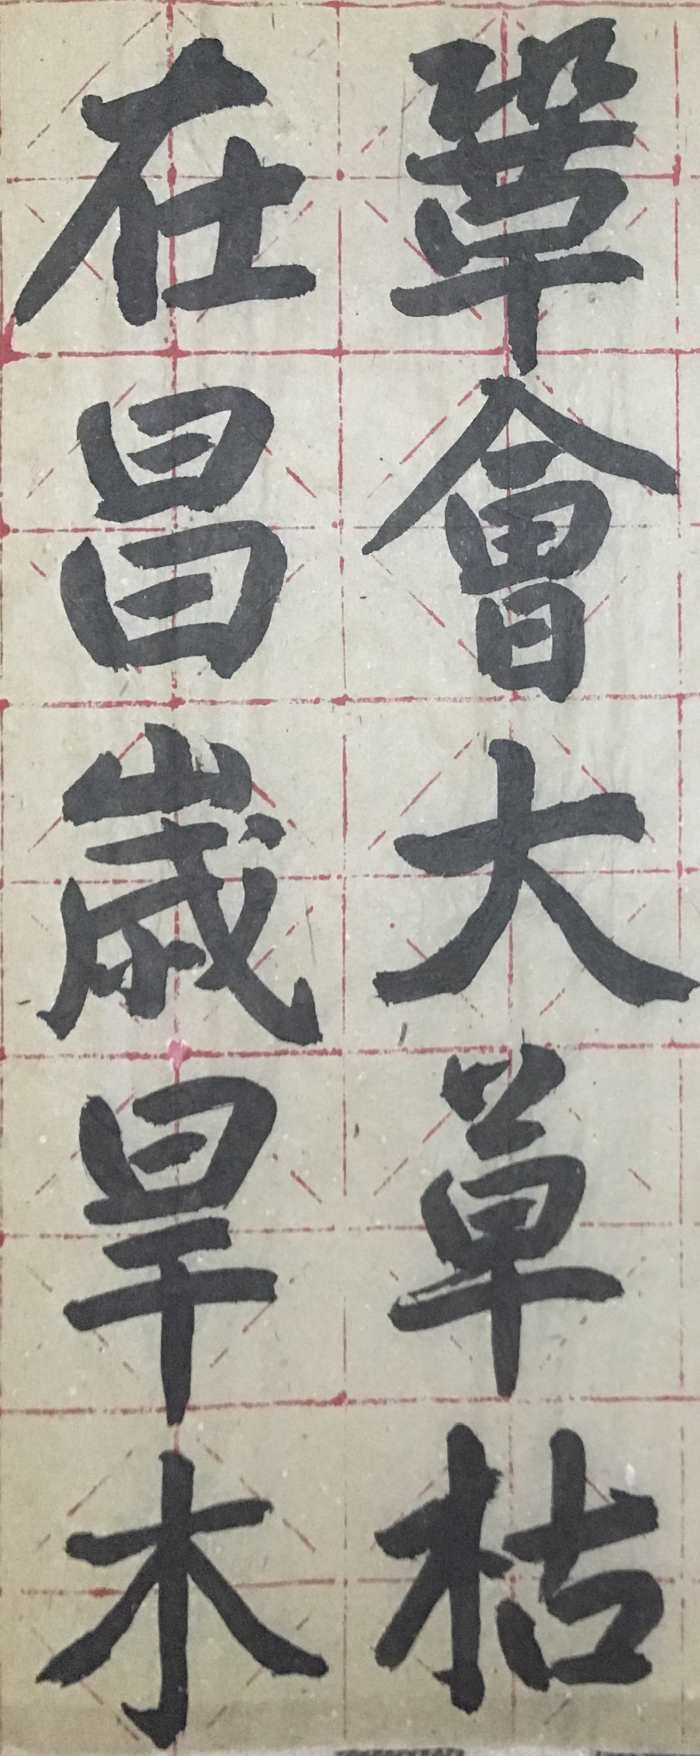 在鞏
昌會
歲大
旱草
木枯